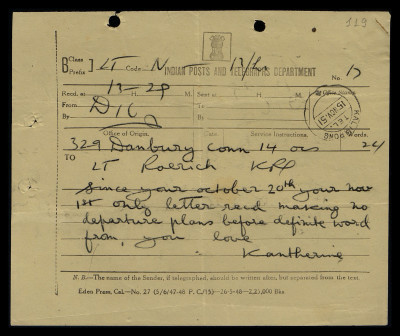 519
B Class Prefix } LT Code N
INDIAN POSTS AND TELEGRAPHS DEPARTMENT
No. 17
Recd. at 13-29 Sent at H. M.
From To
By By
Office of Origin. Date. Service Instructions. Words.
329 Danbury conn 14 24
TO
LT Roerich KPG
Since your october 20th your nov
1st only letter recd making no
departure plans before definite word
from, you love
Kantherine
N. B.—The name of the Sender, if telegraphed, should be written after, but separated from the text.
Eden Press, Cal.—No. 27 (5/6/47-48 P. C./15)—26-5-48—2,25,000 Bks.